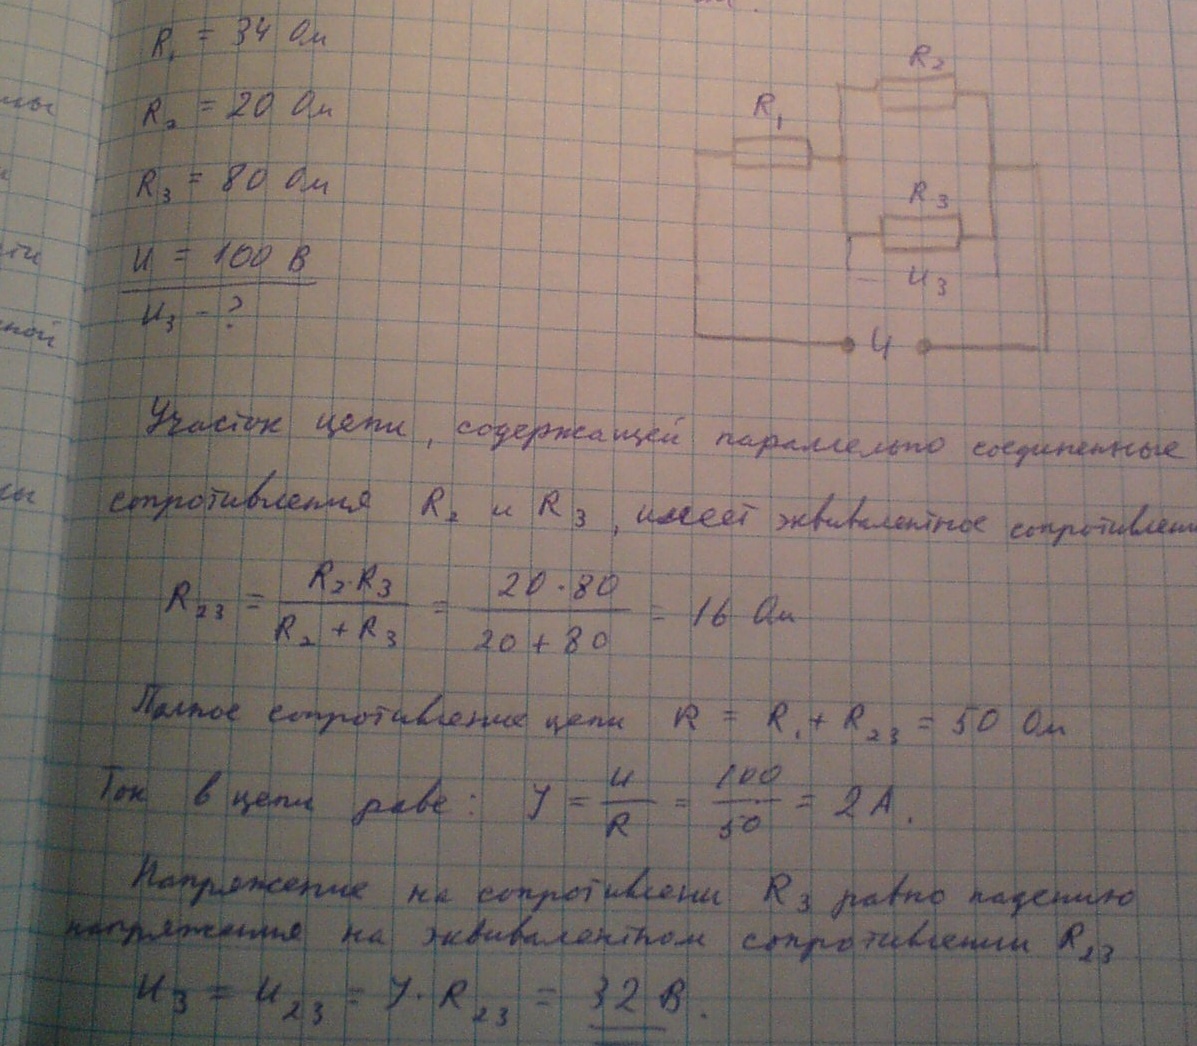 R₁ = 34 Ом
R₂ = 20 Ом
R₃ = 80 Ом
U = 100 В
U₃ - ?
R₂
R₁
R₃
U₃
U
Участок цепи, содержащей параллельно соединенные
сопротивления R₂ и R₃, имеет эквивалентное сопротивлени
R₂₃ = R₂·R₃ / R₂ + R₃ = 20·80 / 20 + 80 = 16 Ом
Полное сопротивление цепи R = R₁ + R₂₃ = 50 Ом
Ток в цепи раве: J = U / R = 100 / 50 = 2 А.
Напряжение на сопротивлени R₃ равно падению
напряжения на эквивалентном сопротивлении R₂₃
U₃ = U₂₃ = J · R₂₃ = 32 В.